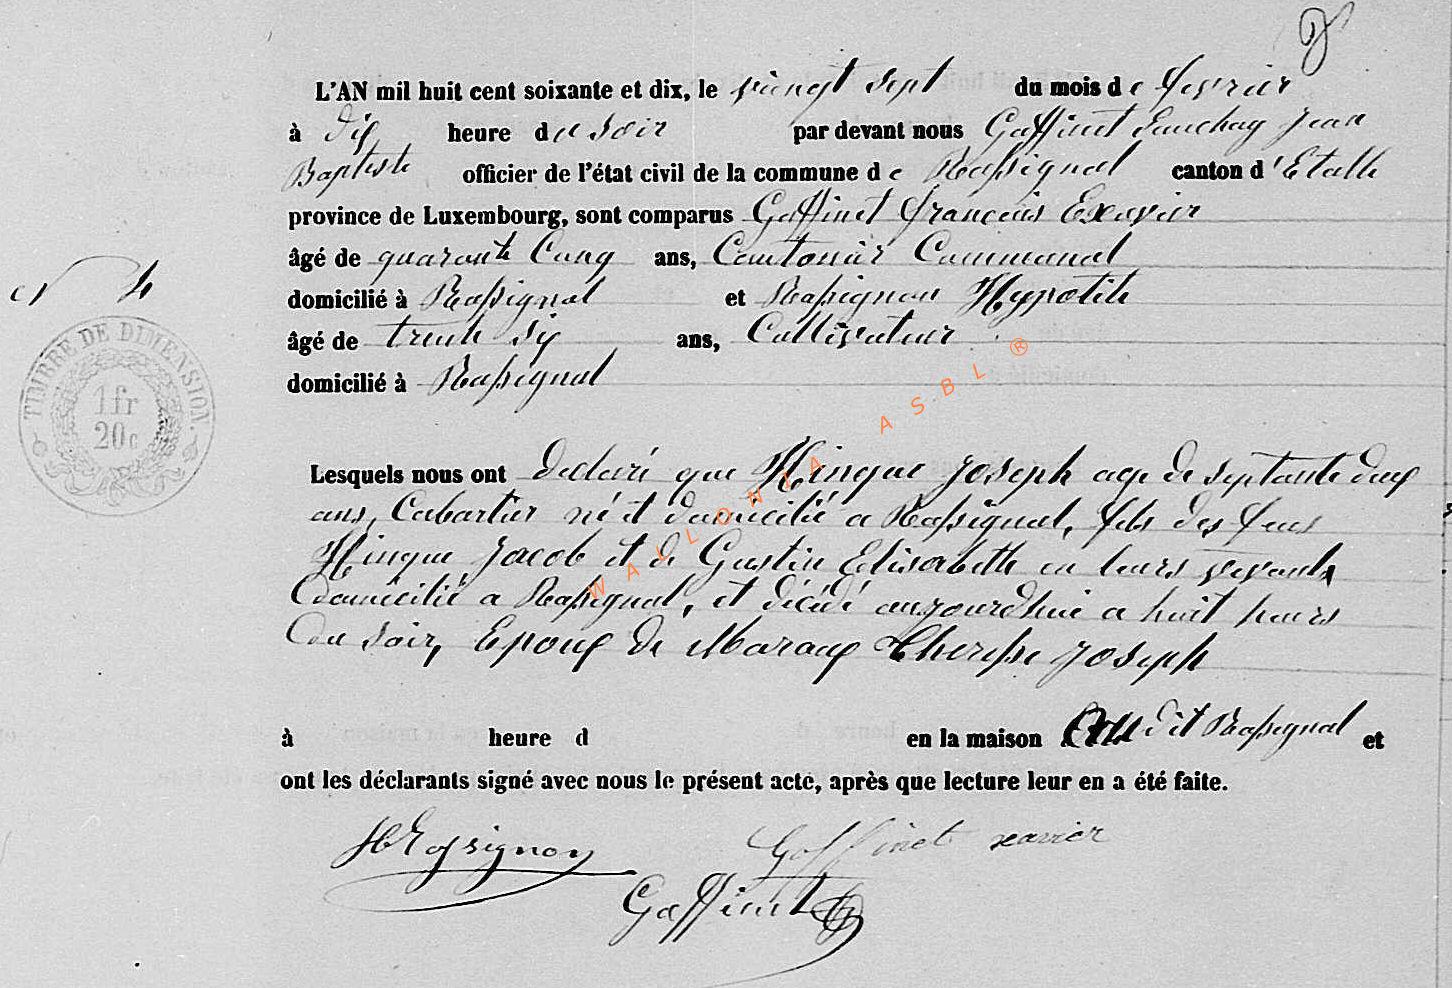 L'AN mil huit cent soixante et dix, le vingt sept du mois de fevrier
à dix heure du soir par devant nous Goffinet Jean
Baptiste officier de l'état civil de la commune de Rossignol canton d'Etalle
province de Luxembourg, sont comparus Goffinet François Exavier
âgé de quarante Cinq ans, Cantonier Communal
N 4
domicilié à Rossignol et Rossignon Hypolite
âgé de trente six ans, Cultivateur
domicilié à Rossignol
TIMBRE DE DIMENSION.
1 fr
20c
Lesquels nous ont declaré que Hinque Joseph age de septante deux
ans, Cabartier né et domicilié a Rossignol, fils des feus
Hinque Jacob et de Gustin Elisabeth en leurs vivants
domicilié a Rossignol, et décédé aujourdhui a huit heurs
du soir, Epoux de Maraux Therese Joseph
à heure d en la maison dit Rossignol et
ont les déclarants signé avec nous le présent acte, après que lecture leur en a été faite.
HRossignon Goffinet xavier
Goffinet
WALLONIA ASBL ®